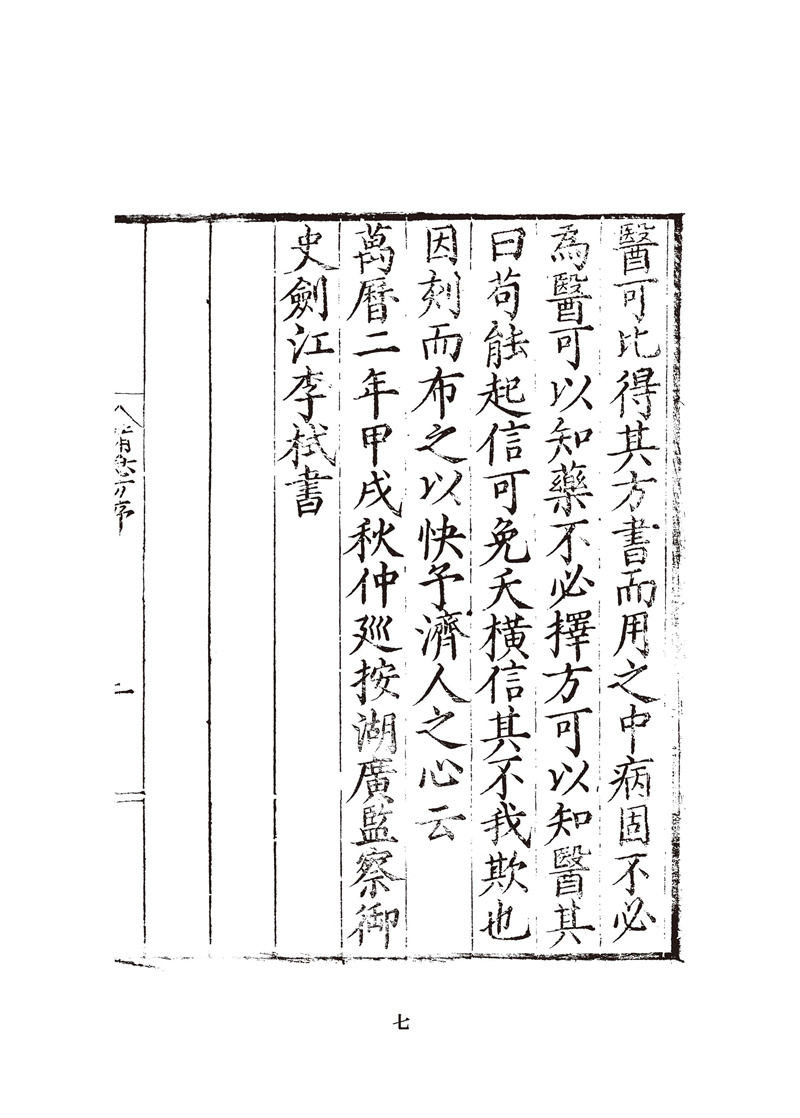 醫可比得其方書而用之中病固不必
為醫可以知藥不必擇方可以知醫其
曰苟能起信可免夭橫信其不我欺也
因刻而布之以快予濟人之心云
萬曆二年甲戌秋仲廵按湖廣監察御
史劍江李栻書
方序
七